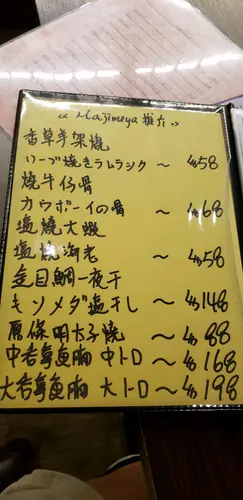 “ Majimeya 推介 ”
香草羊架燒
ハーブ焼きラムラック ～ $58
燒牛仔骨
カウボーイの骨 ～ $68
塩燒大蝦
塩焼海老 ～ $58
金目鯛一夜干
キンメダ塩干し ～ $148
原條明太子燒 ～ $88
中吞拿魚腩 中トロ ～ $168
大吞拿魚腩 大トロ ～ $198